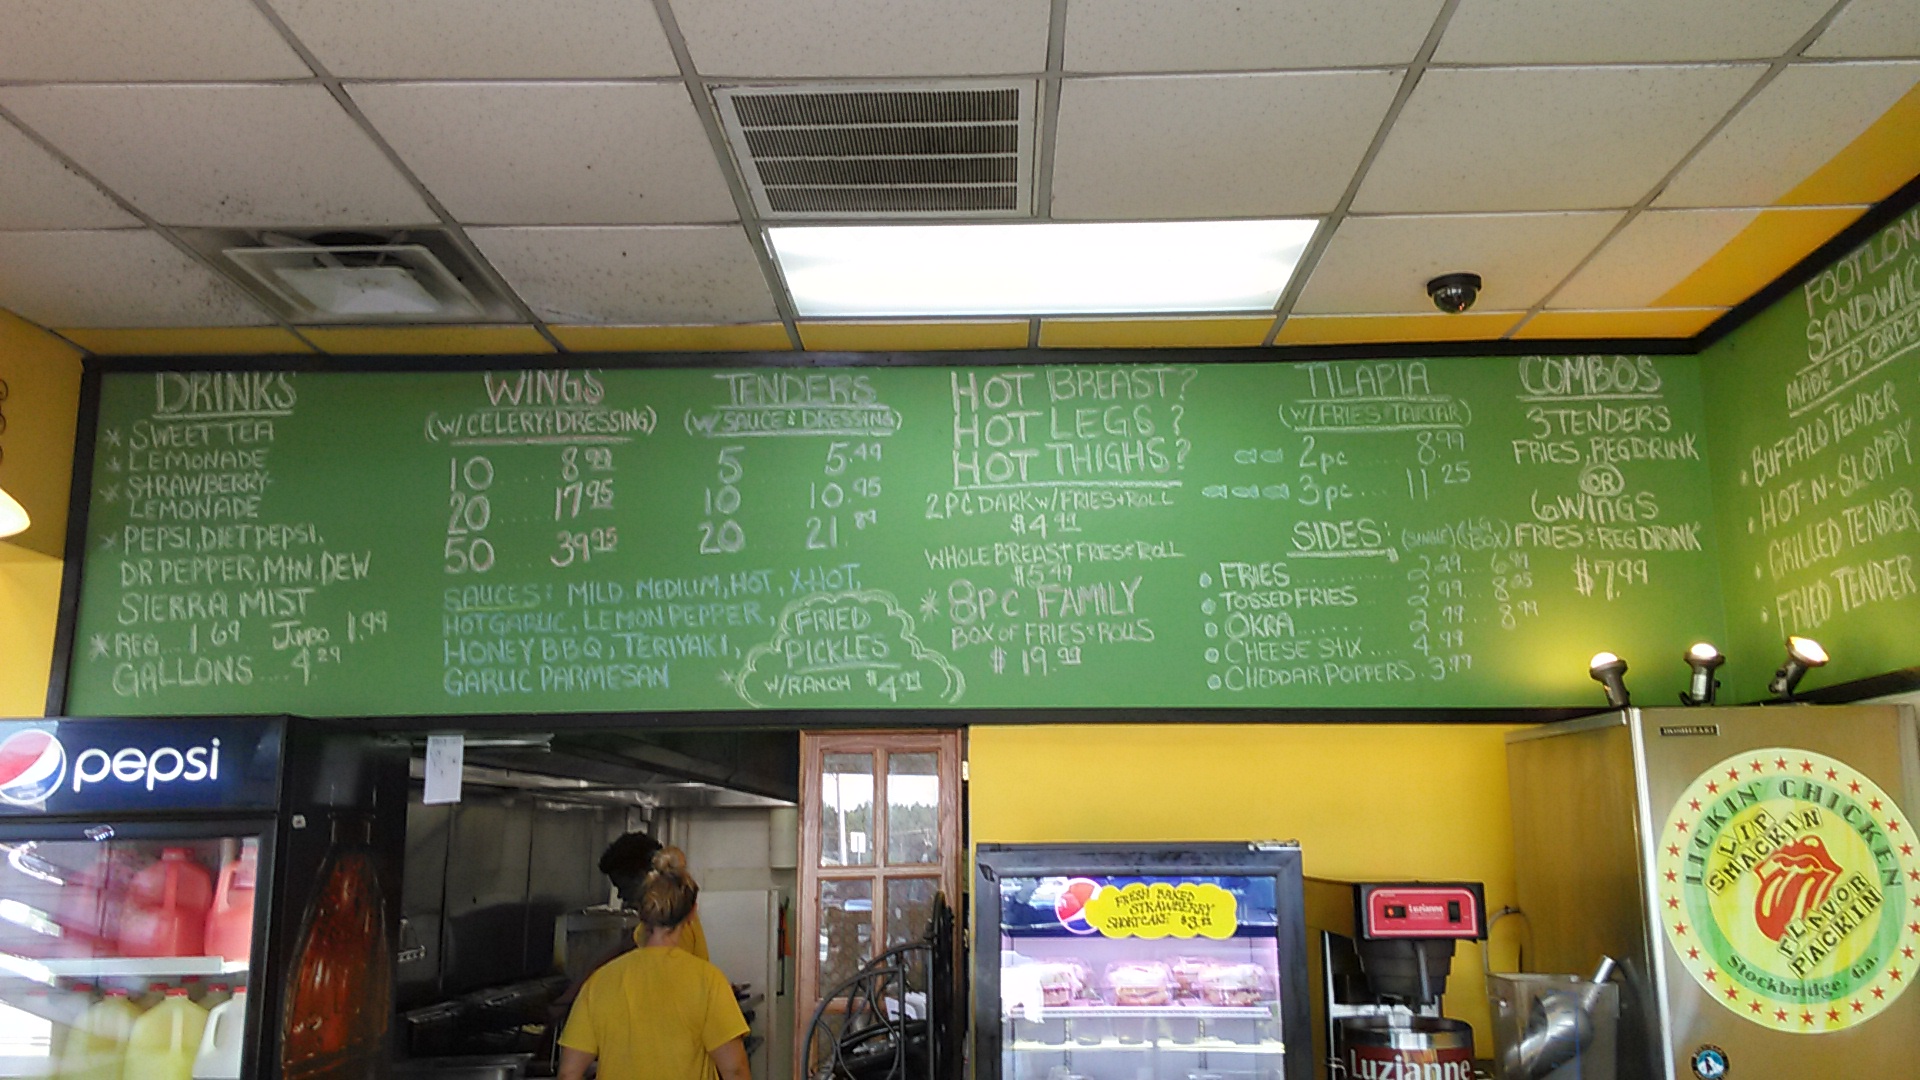 DRINKS
* SWEET TEA
* LEMONADE
* STRAWBERRY-
LEMONADE
* PEPSI, DIET PEPSI,
DR PEPPER, MTN. DEW
SIERRA MIST
* REG... 1.69 JUMBO 1.99
GALLONS .... 4.29
WINGS
(W/ CELERY & DRESSING)
10 ..... 8.99
20 ..... 17.95
50 ..... 39.95
SAUCES: MILD, MEDIUM, HOT, X-HOT,
HOT GARLIC, LEMON PEPPER,
HONEY BBQ, TERIYAKI,
GARLIC PARMESAN
TENDERS
(W/ SAUCE & DRESSING)
5 ..... 5.49
10 ..... 10.95
20 ..... 21.89
* FRIED
PICKLES
W/RANCH $4.99
HOT BREAST?
HOT LEGS?
HOT THIGHS?
2PC DARK W/ FRIES & ROLL
$4.99
WHOLE BREAST FRIES & ROLL
$5.49
* 8PC. FAMILY
BOX OF FRIES & ROLLS
$19.99
TILAPIA
(W/ FRIES & TARTAR)
2pc ..... 8.99
3pc .... 11.25
SIDES: (SINGLE) (LG BOX)
FRIES ........ 2.29 ... 6.99
TOSSED FRIES 2.99 .. 8.25
OKRA ........ 2.99 .. 8.99
CHEESE STIX .... 4.99
CHEDDAR POPPERS . 3.99
COMBOS
3 TENDERS
FRIES, REG DRINK
OR
6 WINGS
FRIES & REG DRINK
$7.99
FOOTLON
SANDWIC
MADE TO ORDE
• BUFFALO TENDER
• HOT-N-SLOPPY
• GRILLED TENDER
• FRIED TENDER
pepsi
FRESH BAKED
STRAWBERRY
SHORTCAKE $3.99
Luzianne
Luzianne
HOSHIZAKI
LICKIN' CHICKEN
LIP
SMACKIN
FLAVOR
PACKIN
Stockbridge, Ga.